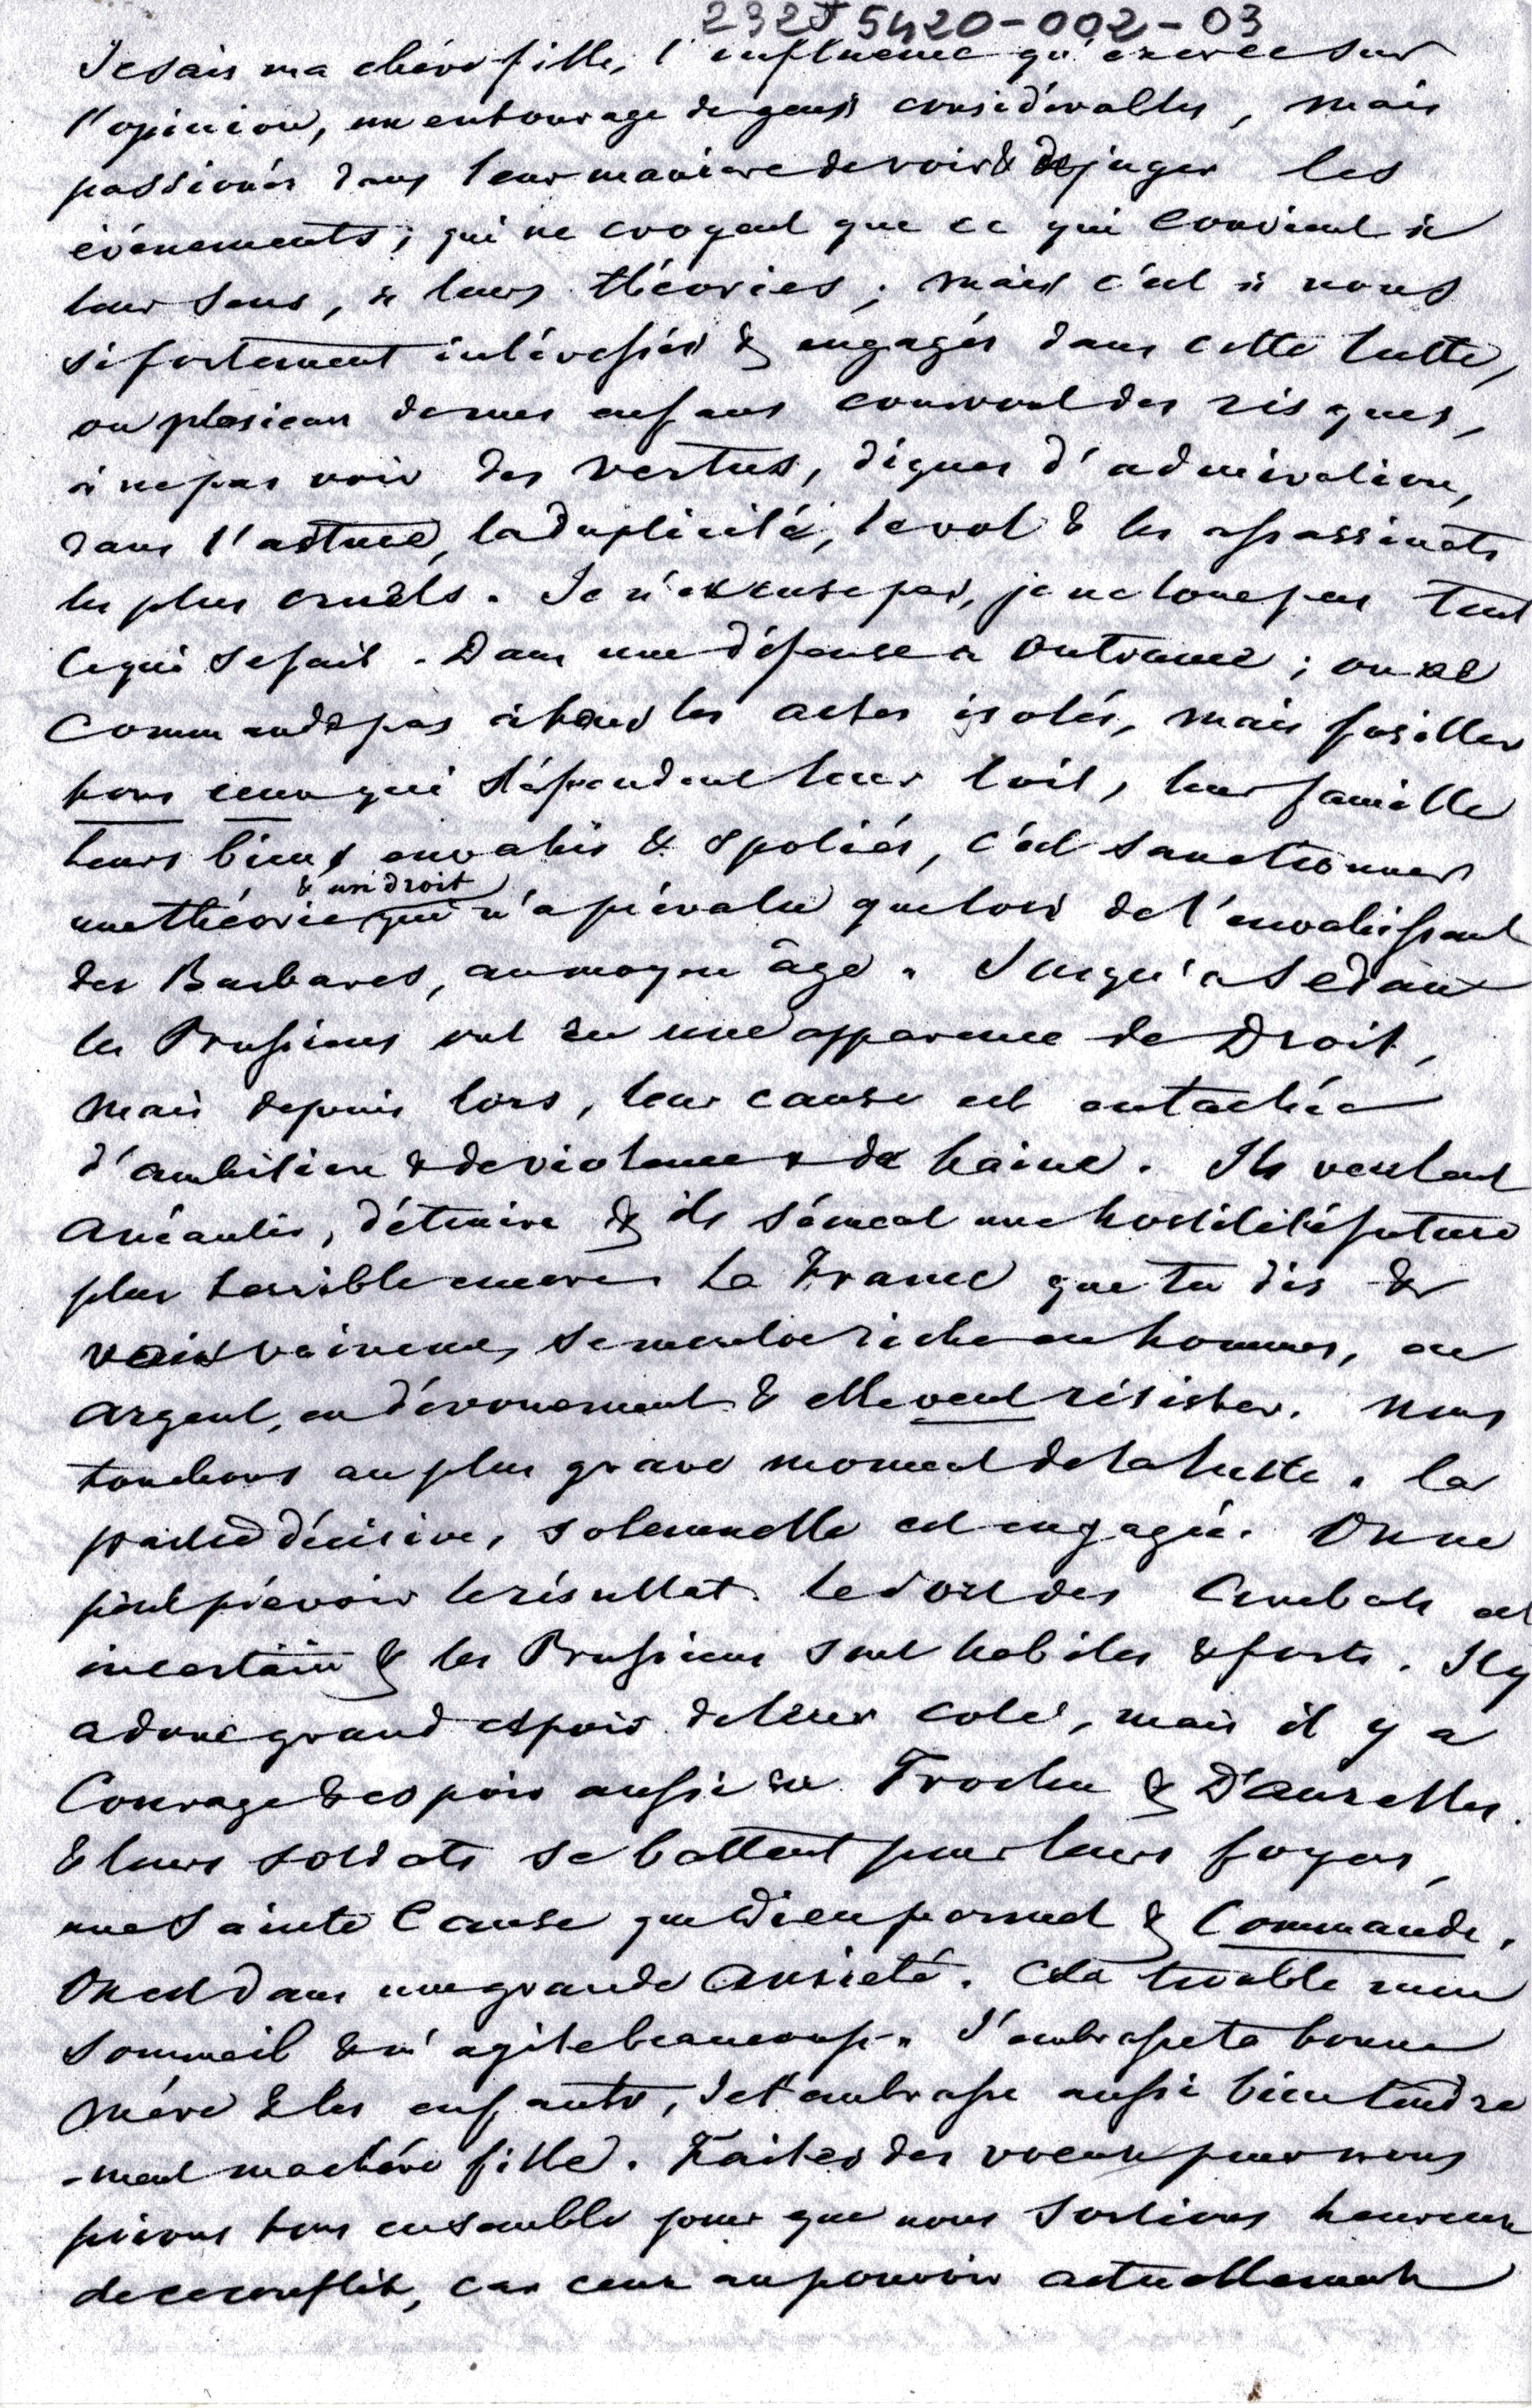 232J5420-002-03
Je sais ma chère fille, l'influence qu'exerce sur
l'opinion, un entourage de gens considérables, mais
passionés dans leur maniere de voir & de juger les
évènements; qui ne croyent que ce qui convient à
leur sens, à leurs théories; mais c'est à nous
si fortement intéressés & engagés dans cette lutte,
ou plusieurs de mes enfans courent des risques,
à ne pas voir des vertus, dignes d'admiration,
dans l'astuce, la duplicité, le vol & les assassinats
les plus cruels. Je n'excuse pas, je ne loue pas tout
ce qui se fait. Dans une défense a outrance; on ne
commande pas à tous les actes isolés, mais fusiller
tous ceux qui défendent leur toit, leur famille
leurs biens envahis & spoliés, c'est sanctionner
& un droit
une théorie qui n'a prévalu que lors de l'envahissant
des Barbares, au moyen âge. Jusqu'a Sedan
les Prussiens ont eu une apparence de Droit,
mais depuis lors, leur cause est entachée
d'ambition & de violence & de haine. Ils veulent
anéantir, détruire & ils sèment une hostilité future
plus terrible encore. La France que tu dis &
vois vaincue, se montre riche en hommes, en
argent, en dévouement & elle veut résister. Nous
touchons au plus grave moment de la lutte. la
partie décisive, solemnelle est engagée. On ne
peut prévoir le résultat. le sort des Combats est
incertain & les Prussiens sont habiles & forts. Il y
a donc grand espoir de leur coté, mais il y a
Courage & espoir aussi en Trochu & D'aurelles.
& leurs soldats se battent pour leurs foyers,
une Sainte Cause que Dieu permet & Commande.
On est dans une grande anxieté. Cela trouble mon
sommeil & m'agite beaucoup. J'embrasse ta bonne
mère & les enfants, Je t'embrasse aussi bien tendre
-ment ma chère fille. Faites des voeux pour nous
prions tous ensemble pour que nous sortions heureux
de ce conflit, car ceux au pouvoir actuellement